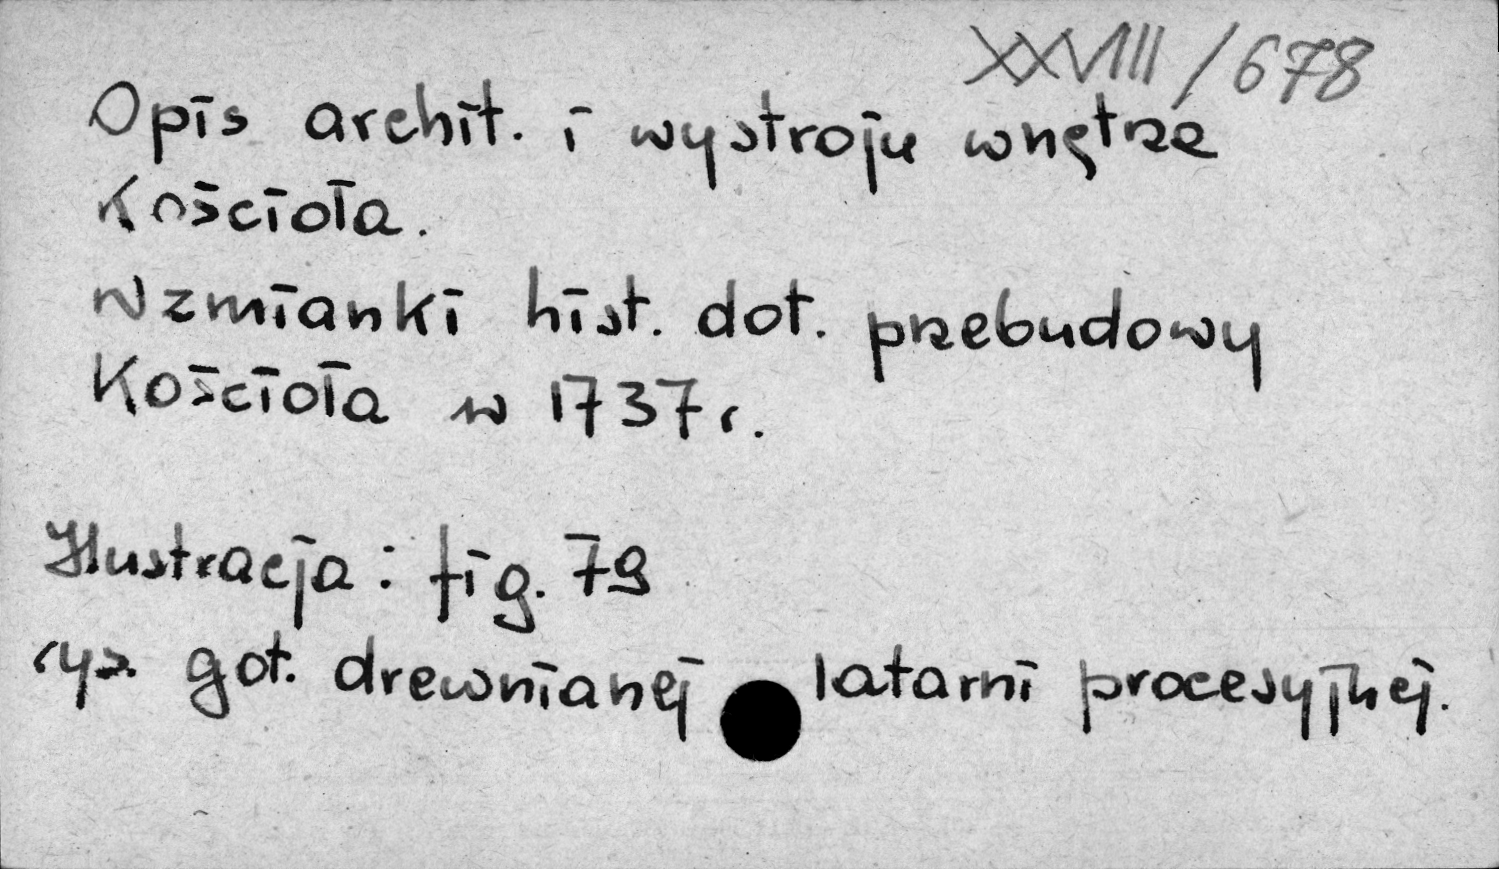 XXVIII/678
Opis archit. i wystroju wnętrza
Kościoła.
Wzmianki hist. dot. przebudowy
Kościoła w 1737 r.
Ilustracja: fig. 79
rys. got. drewnianej latarni procesyjnej.